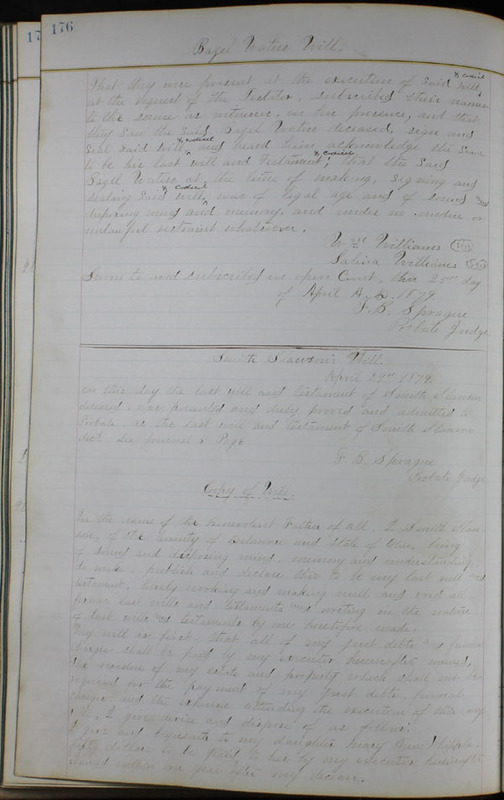 176
Bazel Watree Will.
& codicil
That they were present at the execution of said Will,
at the request of the Testator, subscribed their names
to the same as witnesses, in his presence, and that
they saw the said Bazel Watree deceased, sign and
& codicil
seal said will and heard him acknowledge the same
& codicil
to be his last will and Testament, that the said
Bazel Watree at the time of making, signing and
& codicil
sealing said will, was of legal age and of sound and
disposing mind and memory, and under no undue or
unlawful restraint whatsoever.
Williams
Williams
Sworn to and subscribed in open Court, this 25th day
of April A.D. 1879.
F. B. Sprague
Probate Judge
Smith Slawson's Will.
April 29th 1879.
On this day the last will and testament of Smith Slawson
deceased was presented and duly proved and admitted to
Probate as the last will and testament of Smith Slawson
decd. See Journal Page
F. B. Sprague
Probate Judge
Copy of Will.
In the name of the Benevolent Father of all. I Smith Slaw
son, of the County of Defiance and State of Ohio, being
of sound and disposing mind, memory and understanding,
do make publish and declare this to be my last will and
testament, hereby revoking and making null and void all
former last wills and testaments and writing in the nature
of last wills and testaments by me heretofore made.
My will is first, that all of my just debts & funeral
charges shall be paid by my executor hereinafter named,
the residue of my estate and property which shall not be
required for the payment of my just debts, funeral
charges and the expenses attending the execution of this my
will, I give devise and dispose of as follows:
I give and bequeath to my daughter Mary Whipple
fifty dollars to be paid to her by my executor hereinafter
named within one year after my decease.